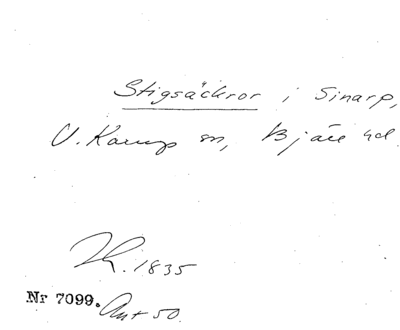 Stigsäckror i Sinarp,
V. Karup sn, Bjäre hd
1835
Nr 7099. Ant 50